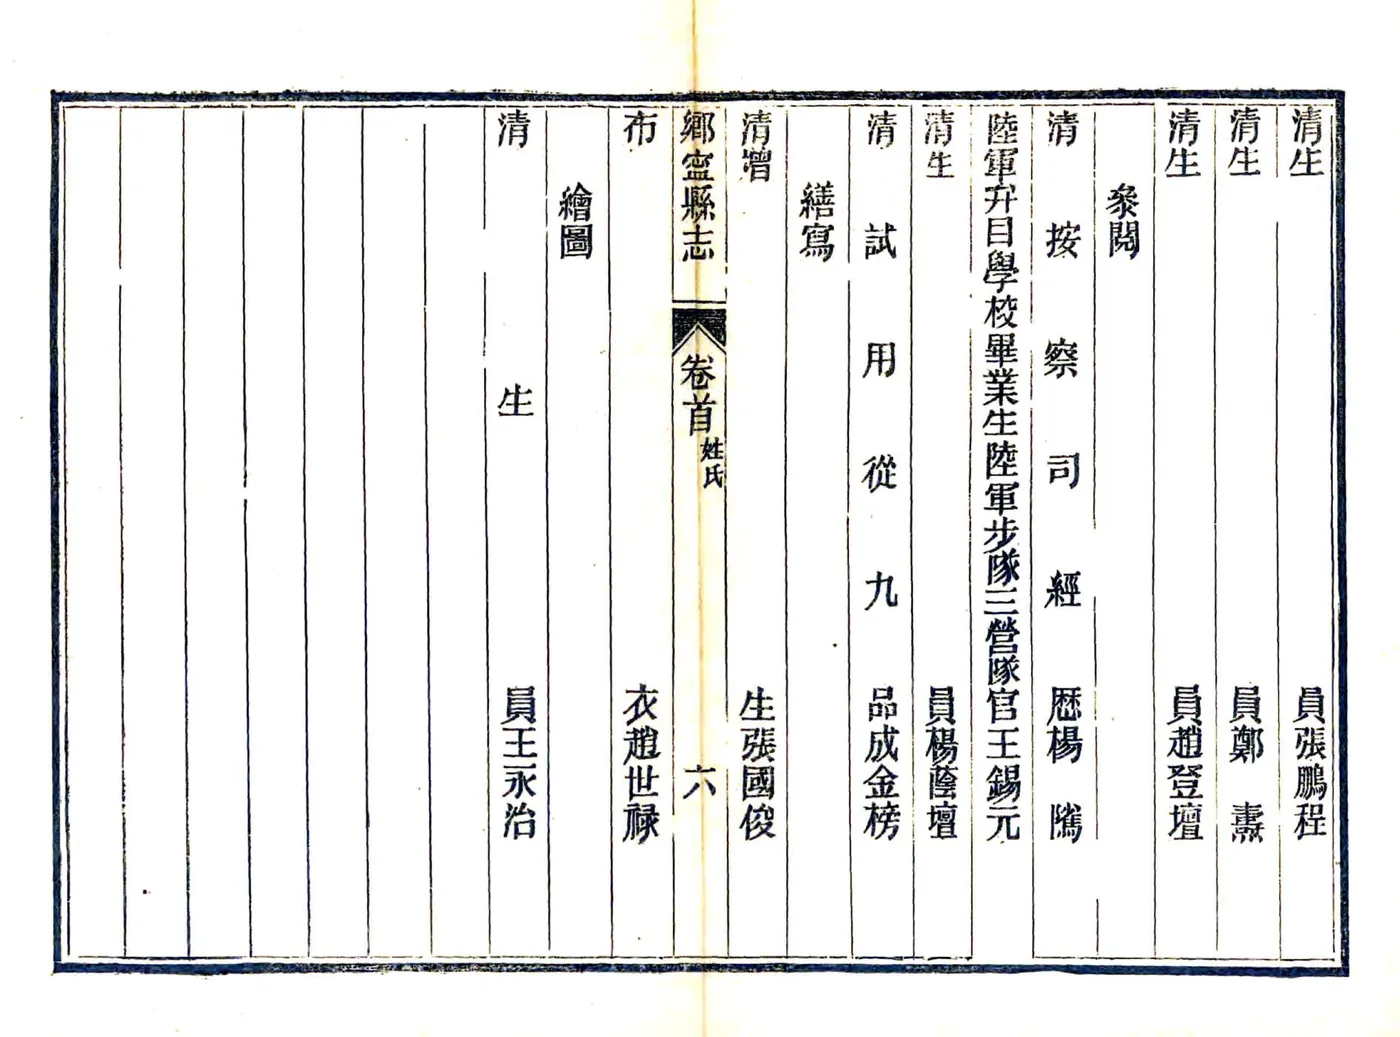 清生員張鵬程
清生員鄭燾
清生員趙登壇
叅閱
清按察司經歷楊隲
陸軍弁目學校畢業生陸軍步隊三營隊官王錫元
清生員楊蔭壇
清試用從九品成金榜
繕寫
清增生張國俊
鄉寧縣志
卷首
姓氏
六
布衣趙世祿
繪圖
清生員王永治